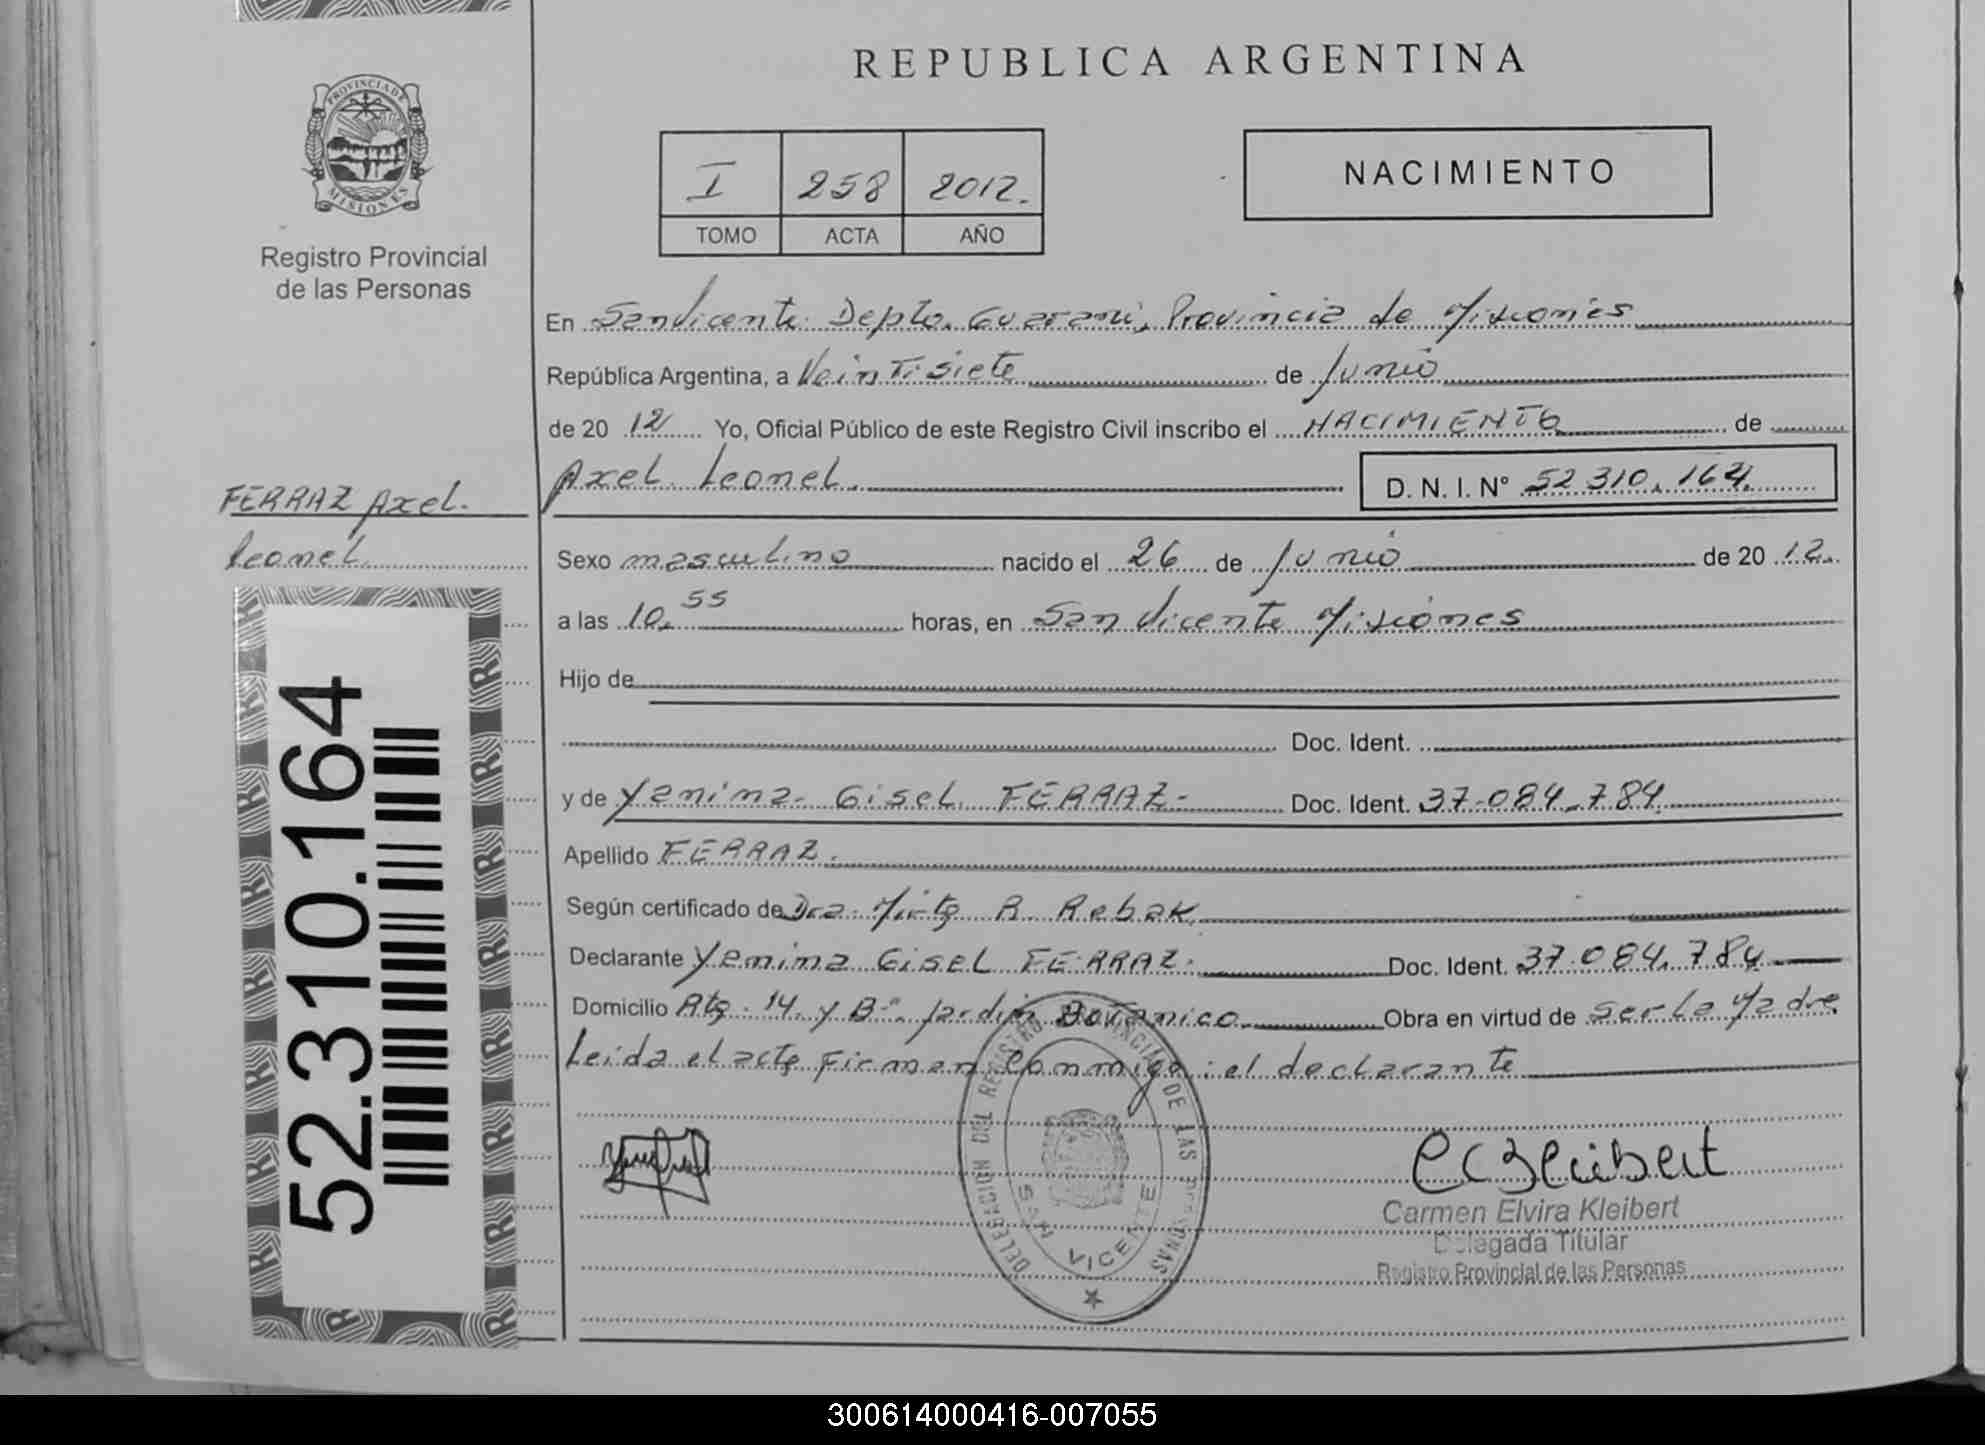 REPUBLICA ARGENTINA
PROVINCIA DE
MISIONES
Registro Provincial
de las Personas
I 258 2012.
TOMO ACTA AÑO
NACIMIENTO
En San Vicente Depto. Guarani, Provincia de Misiones
República Argentina, a Veintisiete de Junio
de 20 12 Yo, Oficial Público de este Registro Civil inscribo el NACIMIENTO de
Axel Leonel. D. N. I. N° 52 310.164.
FERRAZ Axel.
Leonel
Sexo masculino nacido el 26 de Junio de 20 12.
a las 10,55 horas, en San Vicente Misiones
Hijo de
Doc. Ident.
y de Yanina Gisel FERRAZ- Doc. Ident. 37.084.784
Apellido FERRAZ.
Según certificado de Dra. Mirta R. Rebak
Declarante Yanina Gisel FERRAZ. Doc. Ident. 37.084.784
Domicilio Rta. 14. y B° Jardin Botanico Obra en virtud de ser la Madre
Leida el acta Firman Conmigo: el declarante
52.310.164
DELEGACION DEL REGISTRO PROVINCIAL DE LAS PERSONAS
SAN VICENTE
Carmen Elvira Kleibert
Delegada Titular
Registro Provincial de las Personas
300614000416-007055